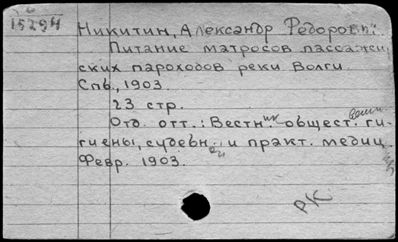 15294
Никитин, Александр Федорович:
Питание матросов пассажир
ских пароходов реки Волги.
Спб., 1903.
23 стр.
Отд. отт.: Вестник общест. ги-
гиены, судебн. и практ. медиц.
Февр. 1903.
РК